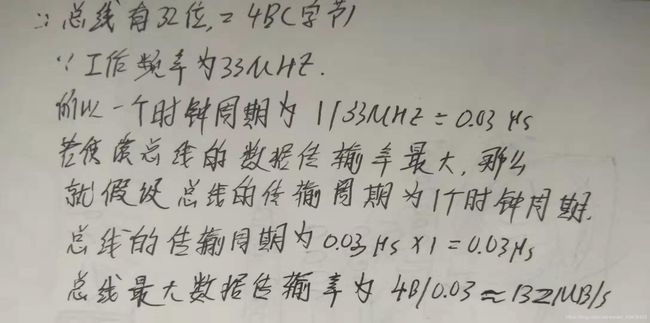 ∵总线有32位,= 4B(字节)
∵工作频率为33MHZ.
所以一个时钟周期为 1/33MHZ = 0.03 μs
若使该总线的数据传输率最大,那么
就假设总线的传输周期为1个时钟周期.
总线的传输周期为0.03 μs ×1 = 0.03μs
总线最大数据传输率为 4B/0.03 ≈ 132MB/s